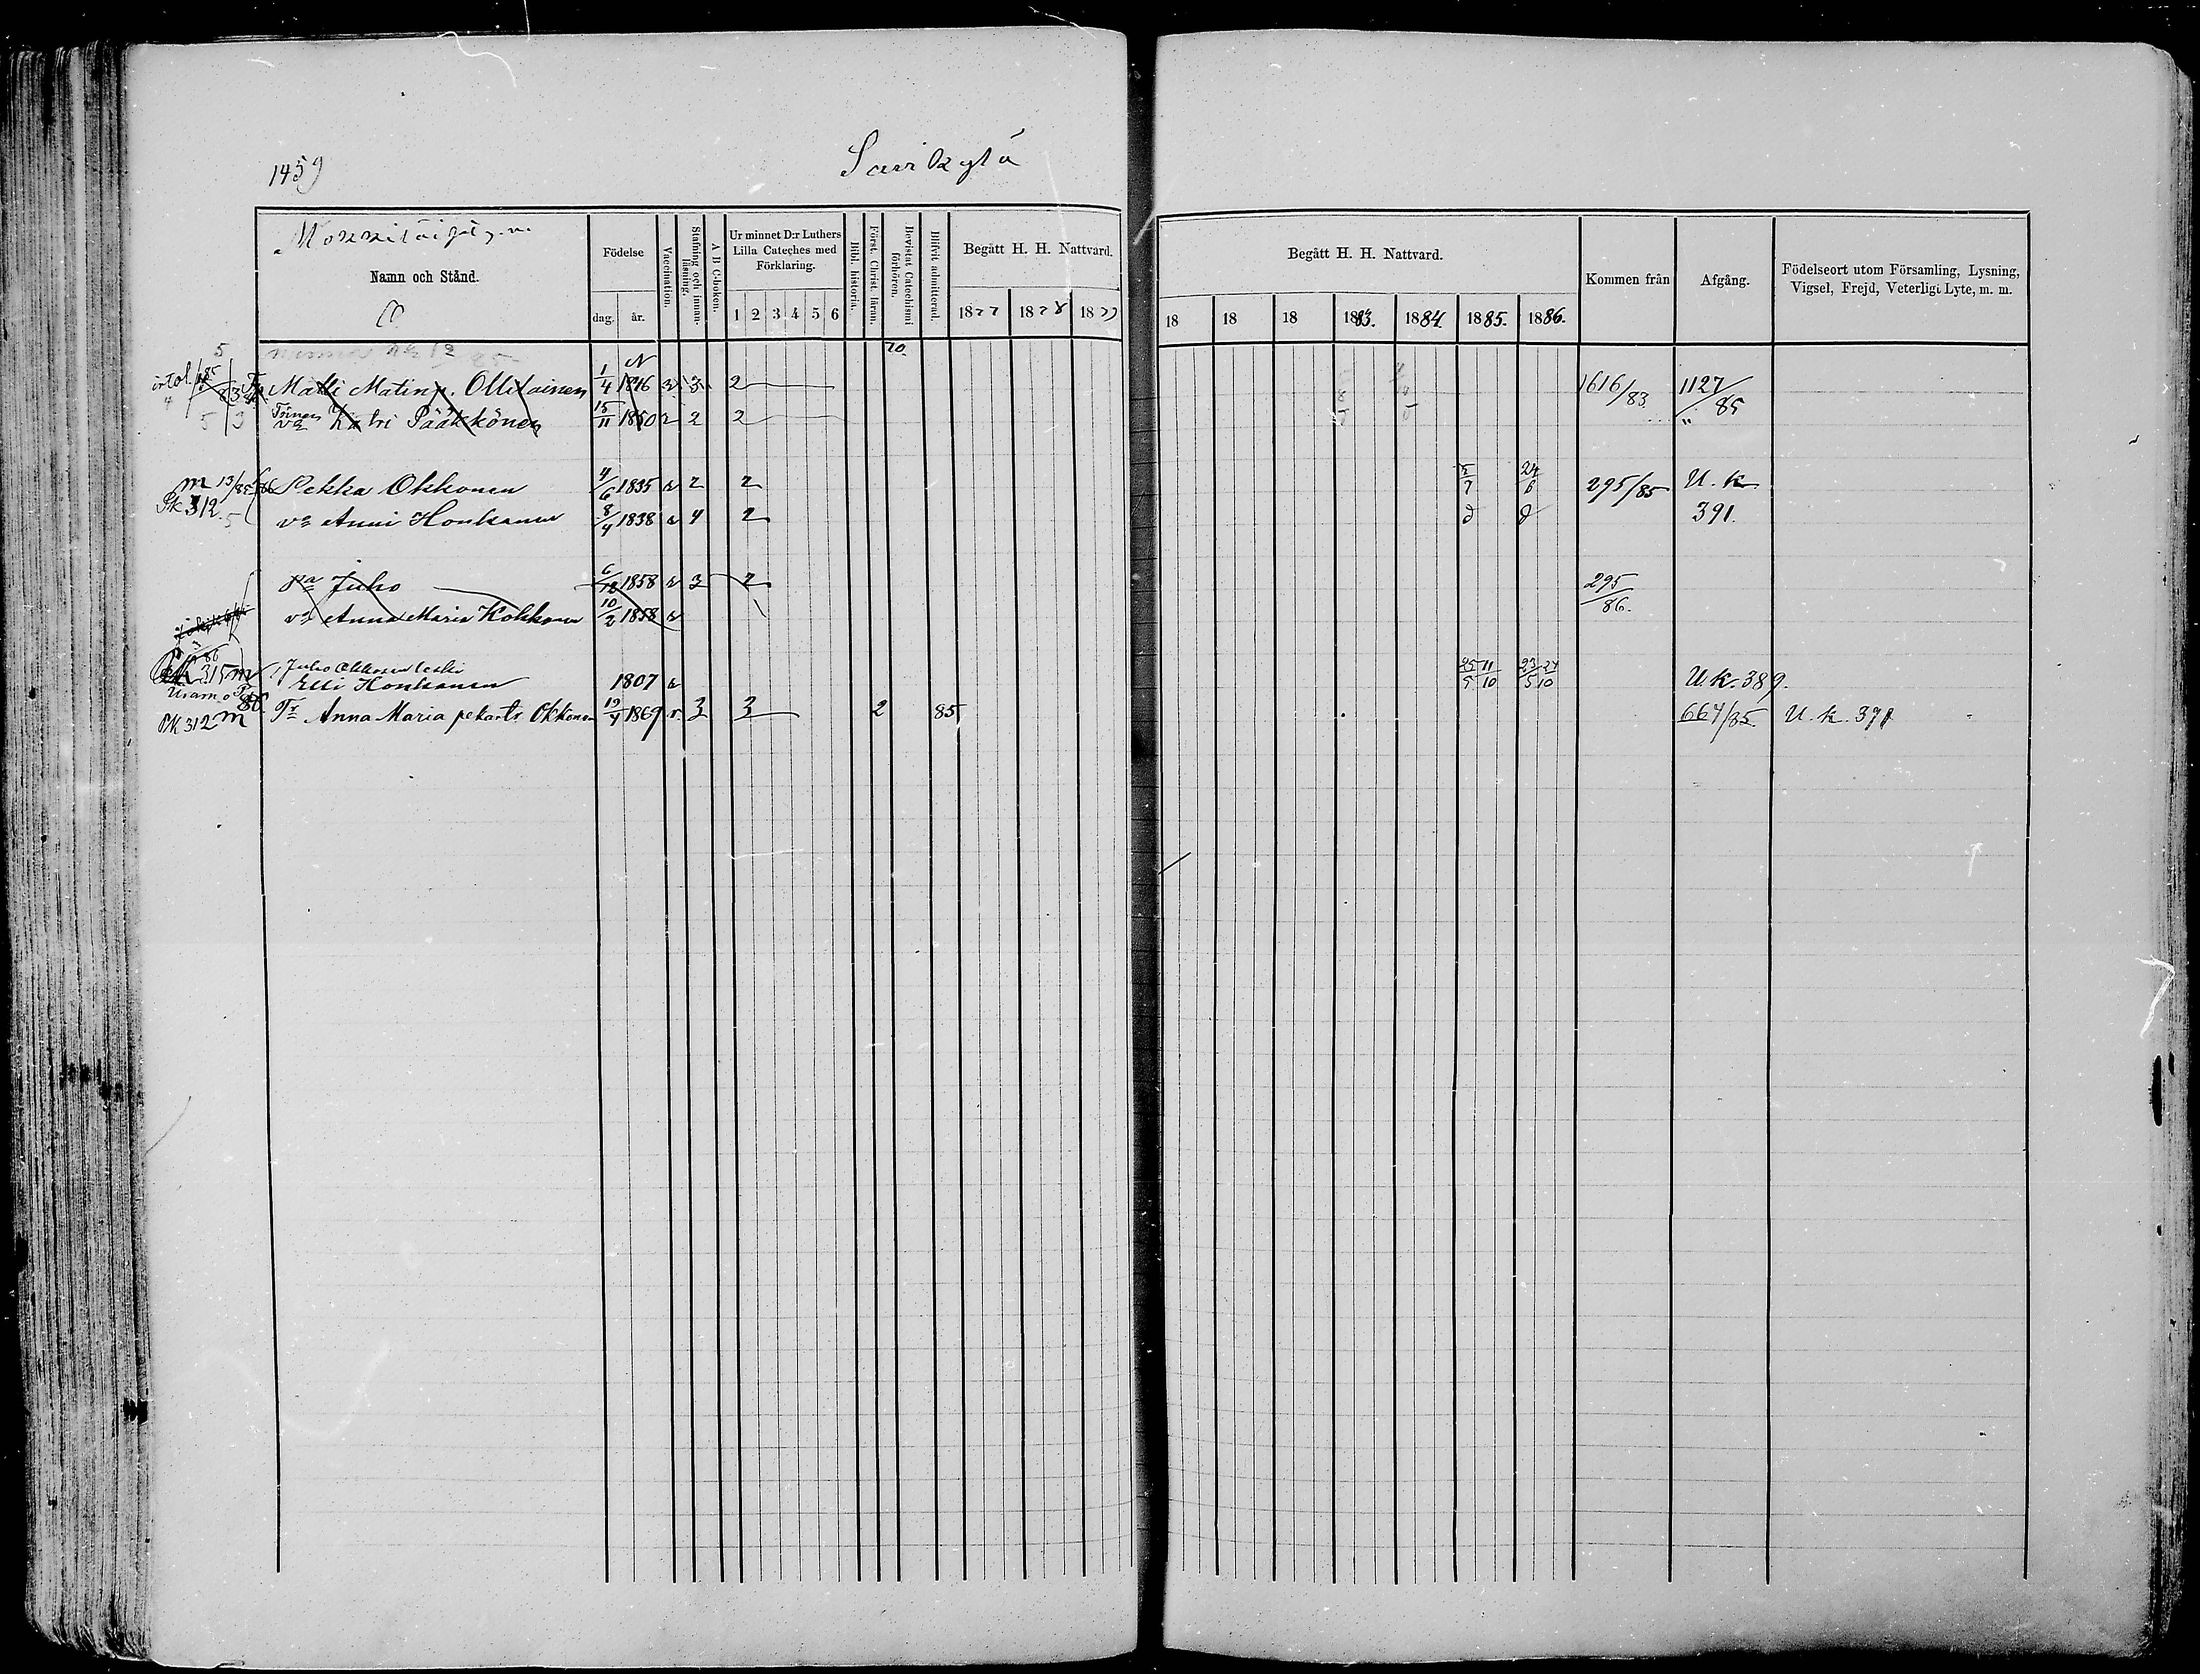 1459
Savikylä
Namn och Stånd.
Födelse
dag. år.
Vaccination.
Stafning och innanläsning.
A B C-boken.
Ur minnet D:r Luthers Lilla Cateches med Förklaring.
1 2 3 4 5 6
Bibl. historia.
Först. Christ. läran.
Bevistat Catechismi förhören.
Blifvit admitterad.
Begått H. H. Nattvard.
1877 1878 1879
Begått H. H. Nattvard.
18 18 18 1883. 1884. 1885. 1886.
Kommen från
Afgång.
Födelseort utom Församling, Lysning, Vigsel, Frejd, Veterligt Lyte, m. m.
Matti Matinp. Ollilainen 1/4 1846 3 2 1616/83 1127/85
Katri Pääkkönen 15/11 1850 2 2 2 "
Pekka Okkonen 4/6 1835 v 2 2 24/6 295/85 U. k.
Pk 312 va Anni Honkanen 8/4 1838 v 4 2 391.
Juho 6/12 1858 v 3 2 295/86.
va Anna Maria Kokkonen 10/2 1858 v
315 m Juho Okkosen leski
Elli Honkanen 1807 v 25/5 11/10 23/5 24/10 U. k. 389.
Pk 312 m Tr Anna Maria pekant. Okkonen 19/4 1869 v 3 3 2 85 664/85 U. k. 391